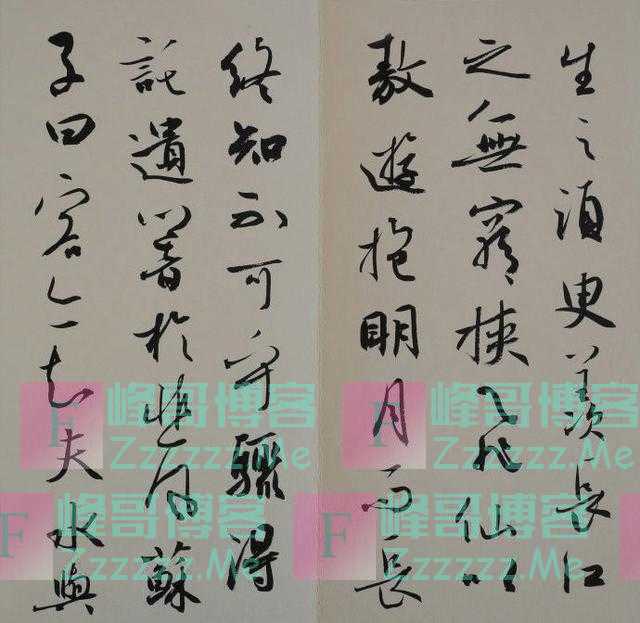 生之須臾羨長江
之無窮挾飛仙以
敖遊抱明月而長
終知不可乎驟得
託遺響於悲風蘇
子曰客亦知夫水與
F 峰哥博客
Zzzzzz.Me
F 峰哥博客
Zzzzzz.Me
F 峰哥博客
Zzzzzz.Me
F 峰哥博客
Zzzzzz.Me